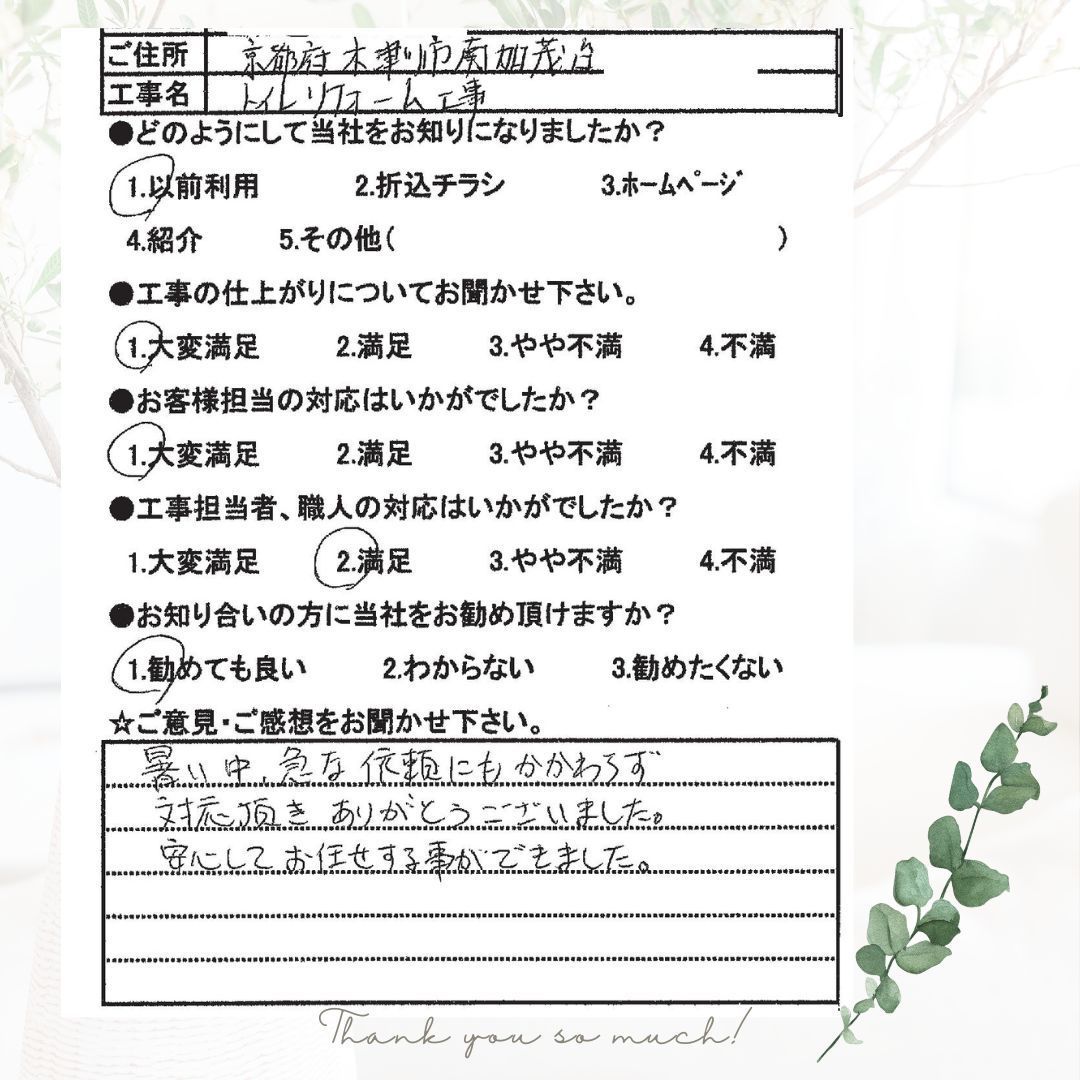 ご住所 京都府木津川市南加茂台
工事名 トイレリフォーム工事
●どのようにして当社をお知りになりましたか？
1.以前利用 2.折込チラシ 3.ホームページ
4.紹介 5.その他( )
●工事の仕上がりについてお聞かせ下さい。
1.大変満足 2.満足 3.やや不満 4.不満
●お客様担当の対応はいかがでしたか？
1.大変満足 2.満足 3.やや不満 4.不満
●工事担当者、職人の対応はいかがでしたか？
1.大変満足 2.満足 3.やや不満 4.不満
●お知り合いの方に当社をお勧め頂けますか？
1.勧めても良い 2.わからない 3.勧めたくない
☆ご意見・ご感想をお聞かせ下さい。
暑い中、急な依頼にもかかわらず
対応頂きありがとうございました。
安心してお任せする事ができました。
Thank you so much!